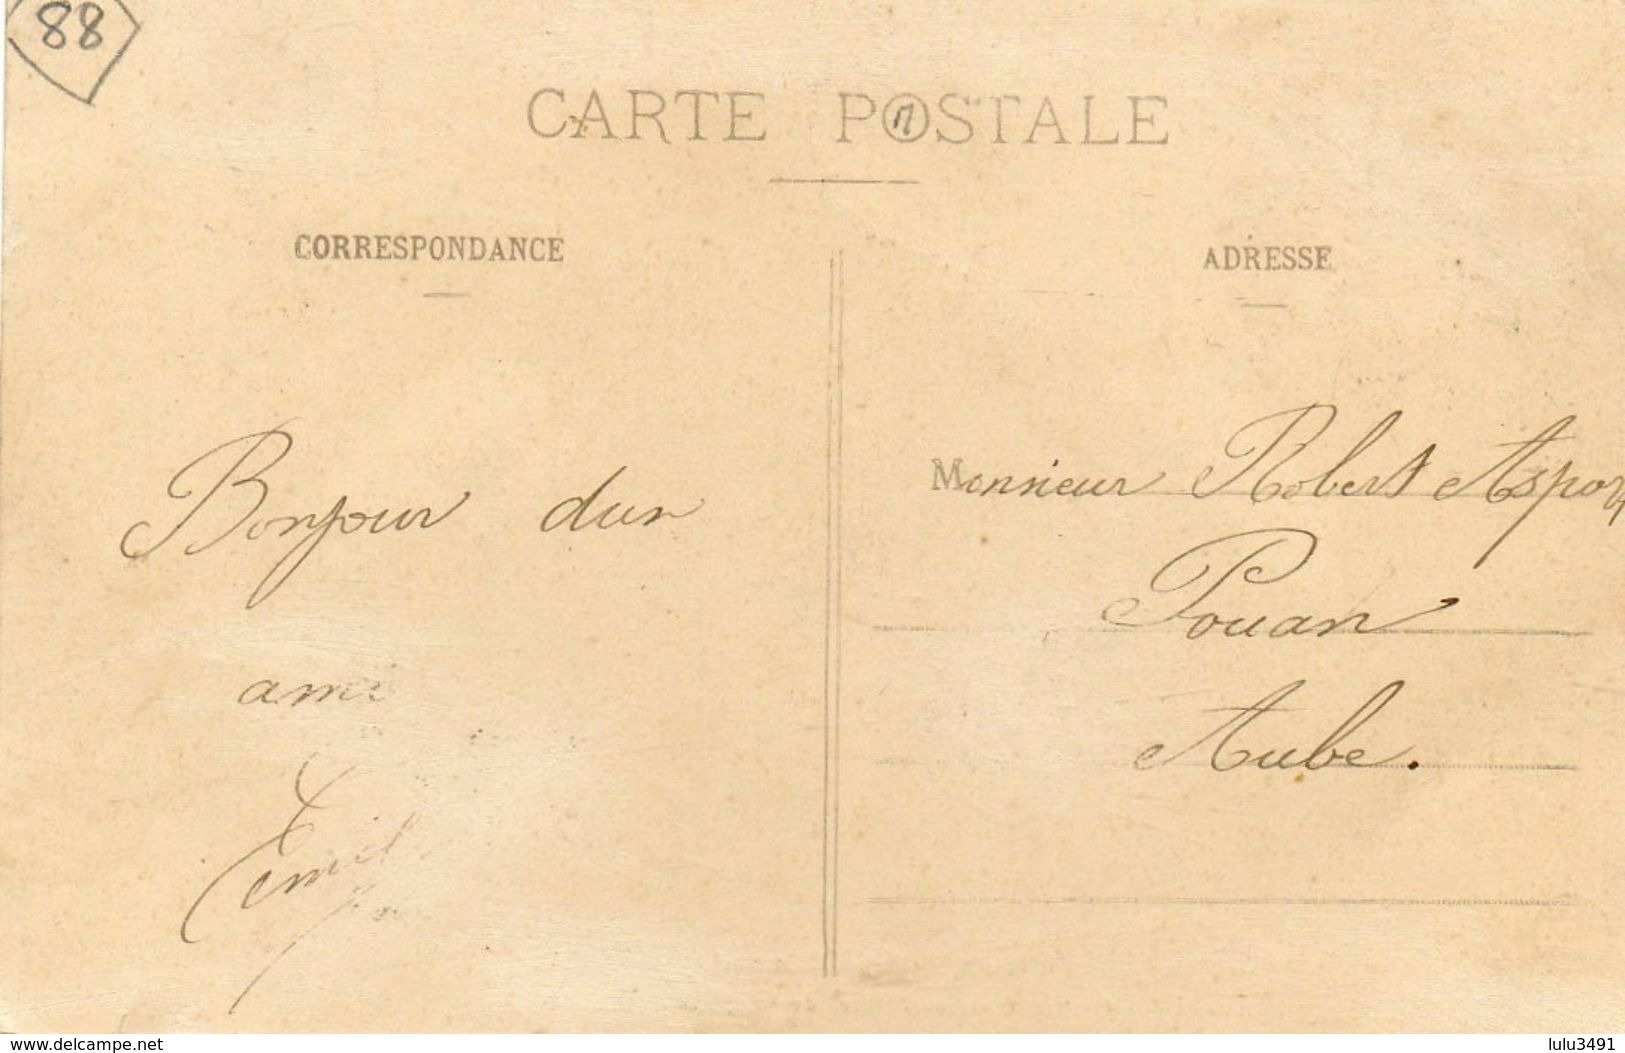 88
CARTE POSTALE
CORRESPONDANCE
Bonjour dun
ami
Emile
ADRESSE
Monsieur Robert
Pouan
Aube.
www.delcampe.net
lulu3491